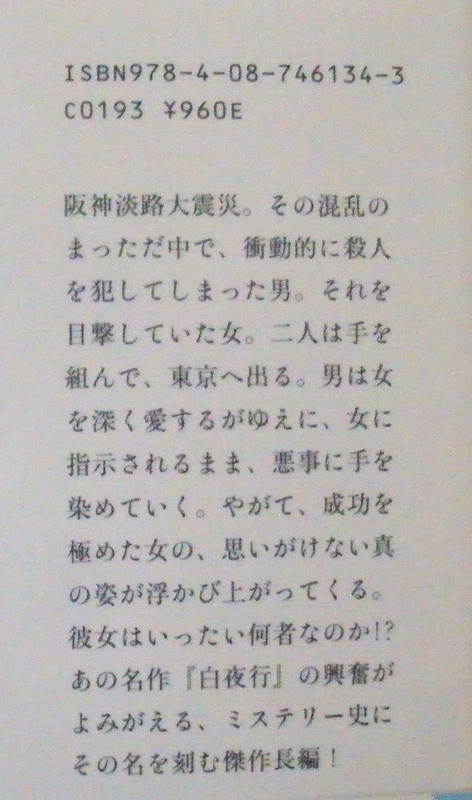 ISBN978-4-08-746134-3
C0193 ¥960E
阪神淡路大震災。その混乱の
まっただ中で、衝動的に殺人
を犯してしまった男。それを
目撃していた女。二人は手を
組んで、東京へ出る。男は女
を深く愛するがゆえに、女に
指示されるまま、悪事に手を
染めていく。やがて、成功を
極めた女の、思いがけない真
の姿が浮かび上がってくる。
彼女はいったい何者なのか!?
あの名作『白夜行』の興奮が
よみがえる、ミステリー史に
その名を刻む傑作長編！